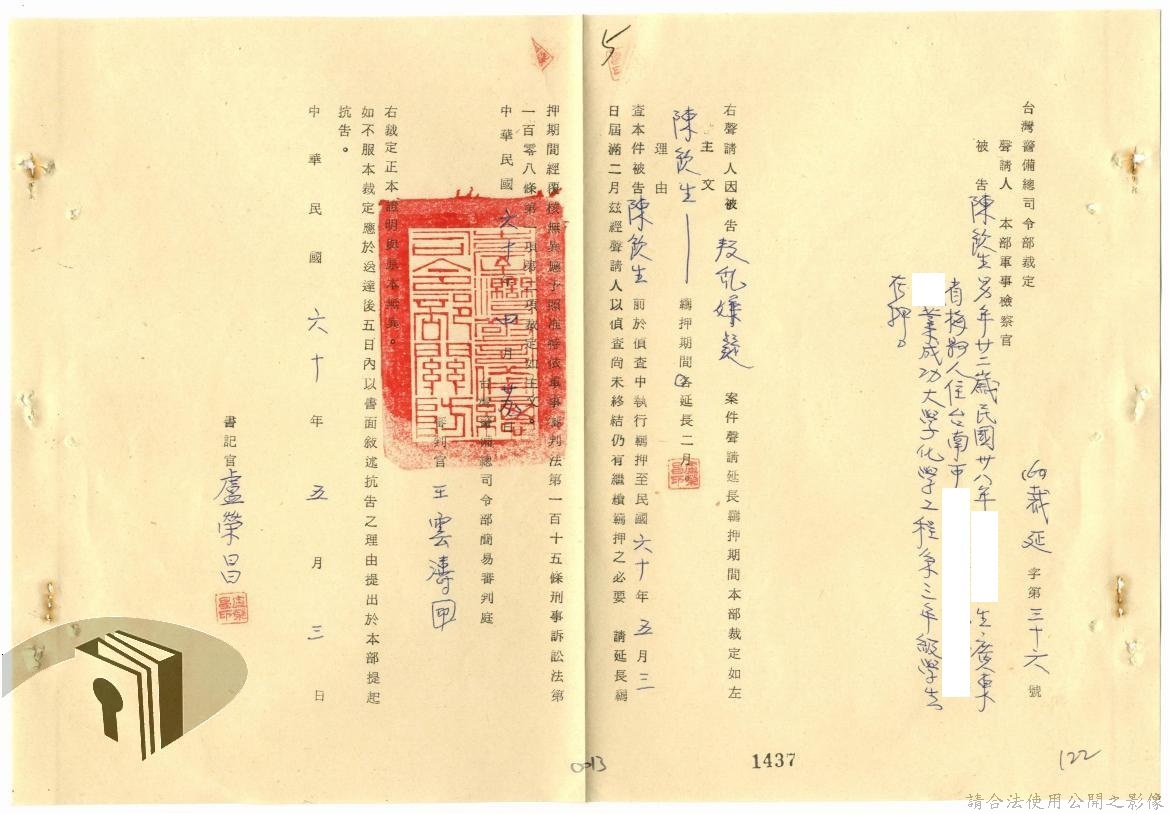 台灣警備總司令部裁定
(60)裁延字第三十六號
聲請人 本部軍事檢察官
被告 陳欽生 男年廿二歲民國卅八年 生廣東
省梅縣人住台南市
業成功大學化學工程系三年級學生
在押。
右聲請人因被告 叛亂嫌疑 案件聲請延長羈押期間本部裁定如左
主文
陳欽生 羈押期間各延長二月
理由
查本件被告陳欽生前於偵查中執行羈押至民國六十年五月三
日屆滿二月茲經聲請人以偵查尚未終結仍有繼續羈押之必要 請延長羈
押期間經覆核無異應予照准特依軍事審判法第一百十五條刑事訴訟法第
一百零八條第 項第 項裁定如主文。
中華民國六十年四月 日
台灣警備總司令部簡易審判庭
審判官 王雲濤
右裁定正本證明與原本無異。
如不服本裁定應於送達後五日內以書面敘述抗告之理由提出於本部提起
抗告。
中華民國六十年五月三日
書記官 盧榮昌
5
0013
1437
122
請合法使用公開之影像